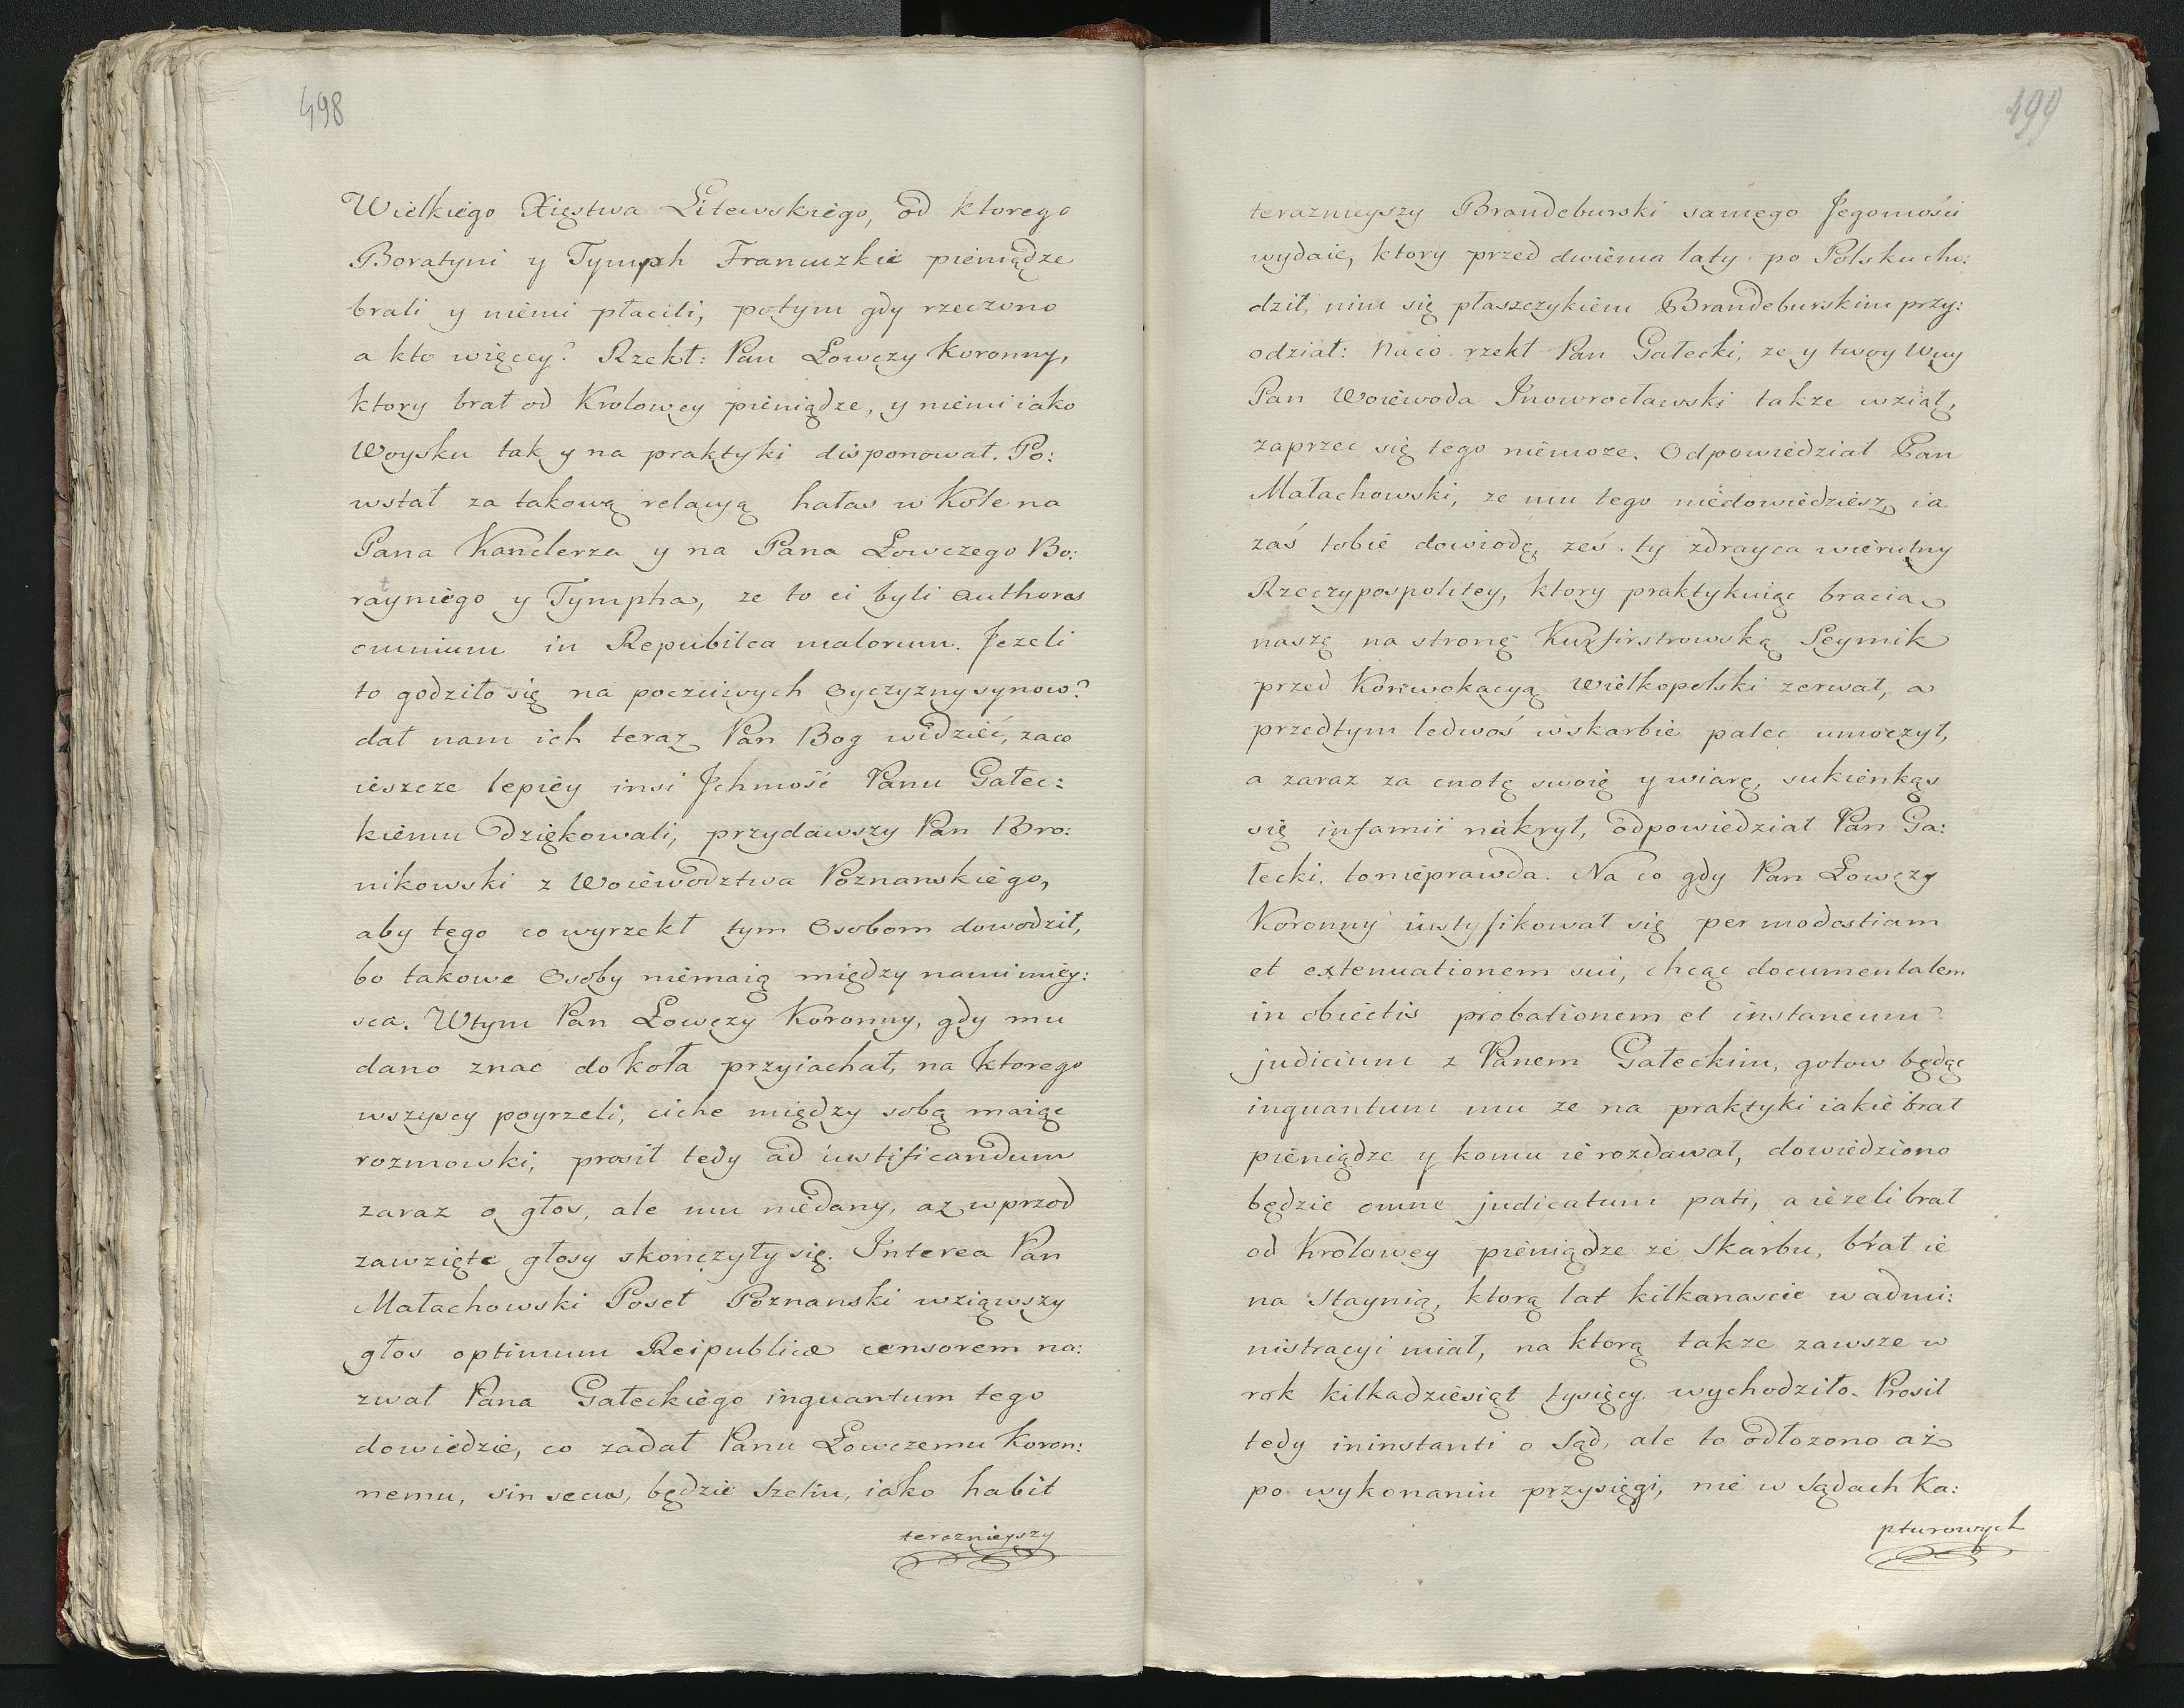 498
Wielkiego Xięstwa Litewskiego, od ktorego
Boratyni y Tymph Francuzkie pieniądze
brali y niemi płacili, potym gdy rzeczono
a kto więcey? Rzekł: Pan Łowczy Koronny,
ktory brał od Krolowey pieniądze, y niemi iako
Woysku tak y na praktyki disponował. Po:
wstał za takową relacyą hałas w Kole na
Pana Kanclerza y na Pana Łowczego Bo:
ratyniego y Tympha, ze to ci byli authores
omnium in Republica malorum. Jezeli
to godziło się na poczciwych Oyczyzny synow?
dał nam ich teraz Pan Bog widzieć, zaco
ieszcze lepiey insi Jchmość Panu Gałec:
kiemu dziękowali, przydawszy Pan Bro:
nikowski z Woiewodztwa Poznanskiego,
aby tego co wyrzekł tym Osobom dowodził,
bo takowe Osoby niemaią między nami miey:
sca. Wtym Pan Łowczy Koronny, gdy mu
dano znać do koła przyiachał, na ktorego
wszyscy poyrzeli, ciche między sobą maiąc
rozmowki, prosił tedy ad iustificandum
zaraz o głos, ale mu niedany, az wprzod
zawzięte głosy skonczyły się. Interea Pan
Małachowski Poseł Poznanski wziąwszy
głos optimum Reipublicæ censorem na:
zwał Pana Gałeckiego inquantum tego
dowiedzie, co zadał Panu Łowczemu Koron:
nemu, sin secus, będzie Szelm, iako habit
terazniejszy
499
terazniejszy Brandeburski samego Jegomości
wydaie, ktory przed dwiema laty po Polsku cho:
dził, nim się płaszczykiem Brandeburskim przy:
odział: Naco rzekł Pan Gałecki, ze y twoy Wuy
Pan Woiewoda Jnowrocławski takze wziął,
zaprzec się tego niemoze. Odpowiedział Pan
Małachowski, ze mu tego niedowiedziesz, ia
zaś tobie dowiodę, ześ ty zdrayca wierutny
Rzeczypospolitey, ktory praktykuiąc bracią
naszę na stronę Kurfirstrowską Seymik
przed Konwokacyą Wielkopolski zerwał, a
przedtym ledwoś w skarbie palec umoczył,
a zaraz za cnotę swoię y wiarę, sukienkąs
się infamii nakrył, odpowiedział Pan Ga:
łecki, to nieprawda. Na co gdy Pan Łowczy
Koronny iustyfikował się per modestiam
et extenuationem sui, chcąc documentalem
in obiectis probationem et instaneum
judicium z Panem Gałeckim, gotow będąc
inquantum mu ze na praktyki iakie brał
pieniądze y komu ie rozdawał, dowiedziono
będzie omne judicatum pati, a iezeli brał
od Krolowey pieniądze ze Skarbu, brał ie
na Staynią, ktorą lat kilkanascie w admi:
nistracyi miał, na ktorą takze zawsze w
rok kilkadziesiąt tysięcy wychodziło. Prosił
tedy ininstanti o Sąd, ale to odłozono aż
po wykonaniu przysięgi, nie w Sądach Ka:
pturowych